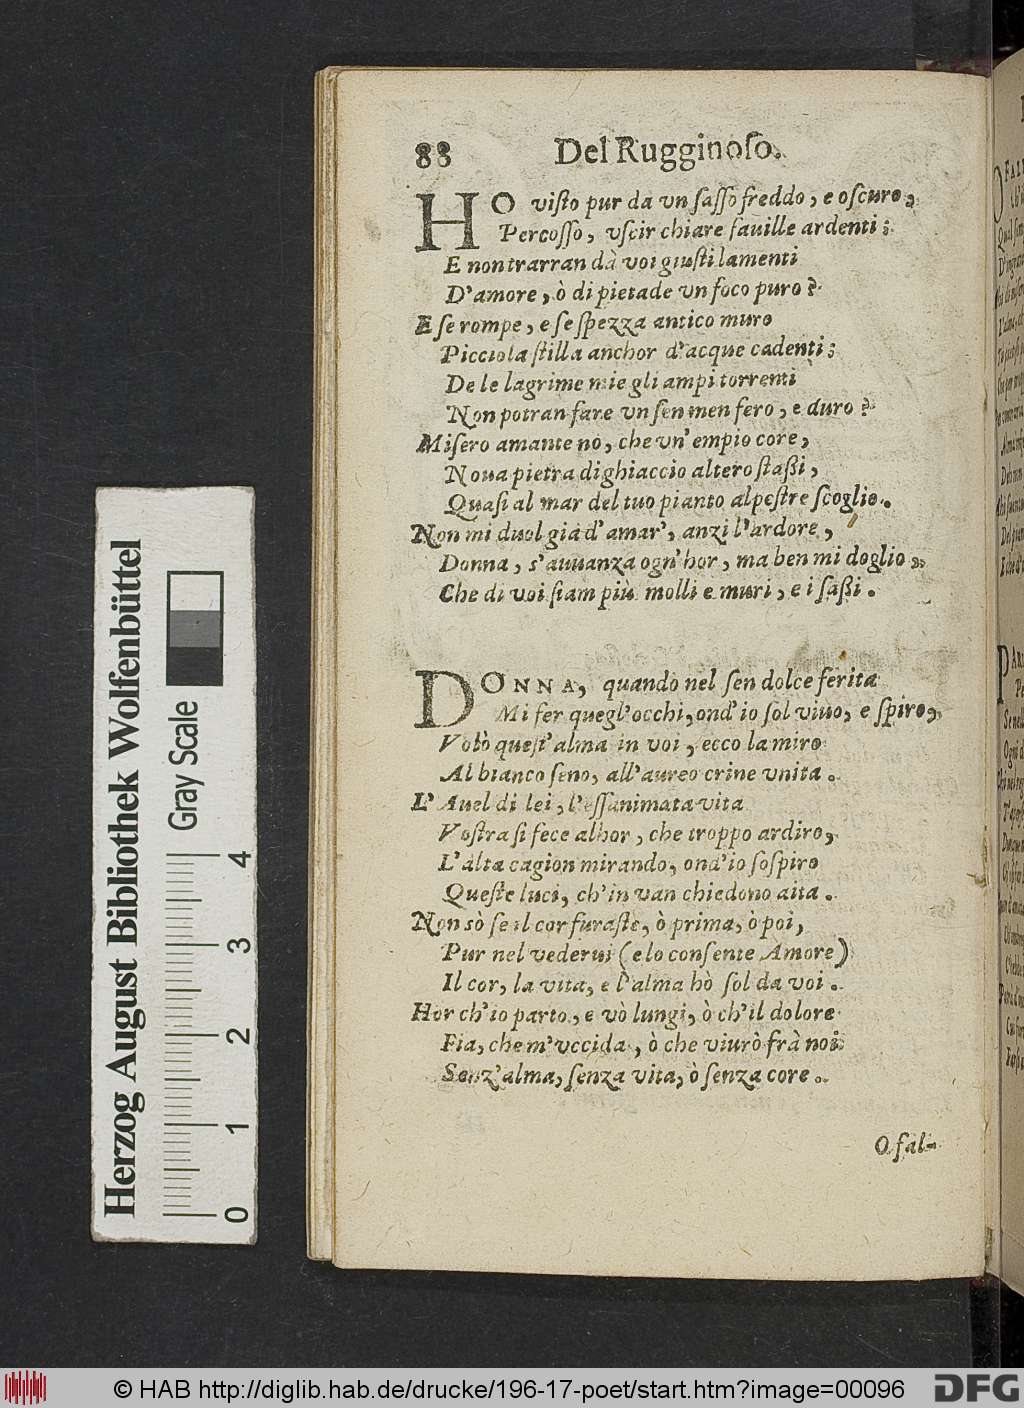 88 Del Rugginoſo.
HO viſto pur da vn ſaſſo freddo, e oſcuro,
Percoſſo, vſcir chiare fauille ardenti;
E non trarran dà voi giuſti lamenti
D'amore, ò di pietade vn foco puro?
E ſe rompe, e ſe ſpezza antico muro
Picciola ſtilla anchor d'acque cadenti;
De le lagrime mie gli ampi torrenti
Non potran fare vn ſen men fero, e duro?
Miſero amante nò, che vn' empio core,
Noua pietra di ghiaccio altero ſtaßi,
Quaſi al mar del tuo pianto alpeſtre ſcoglio.
Non mi duol già d' amar', anzi l'ardore,
Donna, s'auuanza ogn'hor, ma ben mi doglio,
Che di voi ſiam più molli e muri, e i ſaßi.
DONNA, quando nel ſen dolce ferita
Mi fer quegl'occhi, ond' io ſol viuo, e ſpiro,
Volò queſt'alma in voi, ecco la miro
Al bianco ſeno, all'aureo crine vnita.
L' Auel di lei, l'eſſanimata vita
Voſtra ſi fece alhor, che troppo ardiro,
L'alta cagion mirando, ond'io ſoſpiro
Queſte luci, ch'in van chiedono aita.
Non sò ſe il cor furaſte, ò prima, ò poi,
Pur nel vederui (e lo conſente Amore)
Il cor, la vita, e l'alma hò ſol da voi.
Hor ch'io parto, e vò lungi, ò ch'il dolore
Fia, che m'vccida, ò che viurò frà noi
Senz'alma, ſenza vita, ò ſenza core.
O fal-
Herzog August Bibliothek Wolfenbüttel
Gray Scale
0 1 2 3 4
© HAB http://diglib.hab.de/drucke/196-17-poet/start.htm?image=00096
DFG